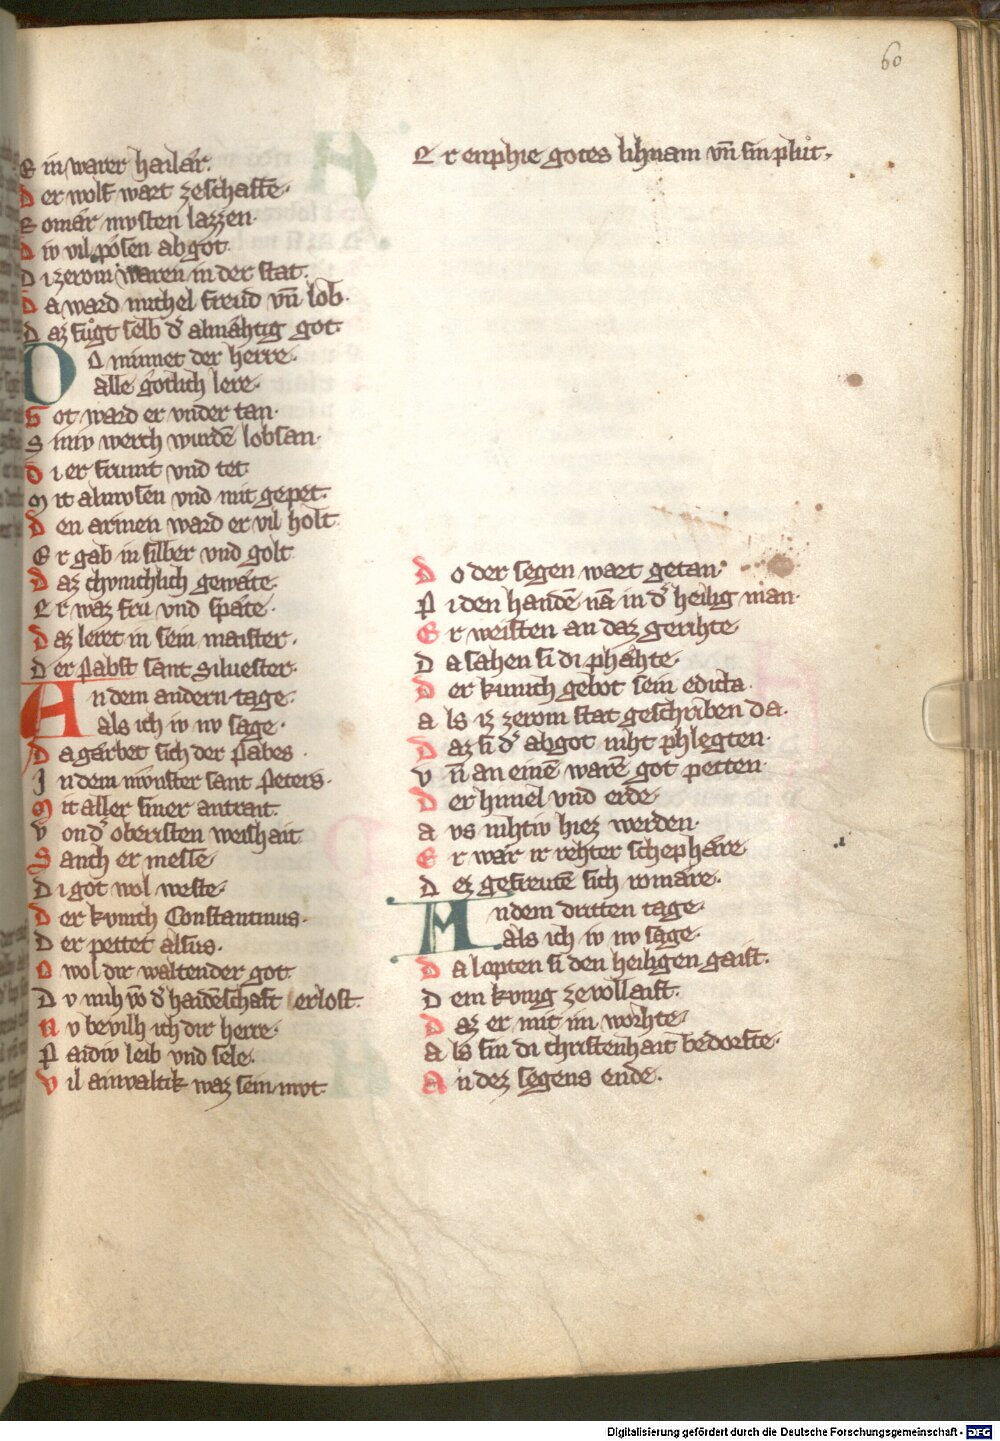 60
E in warer hailår.
D er wolf wart zeschaffē.
R omår mvsten lazzen.
D iv vil pósen abgot.
D i zerom waren in der stat.
D a ward michel freud vn̄ lob.
D az fůgt selb d͛ almåhtig got
D O minnet der herre.
alle gótlich lere.
G ot ward er vnder tan.
S iniv werch wurdē lobsan.
D i er frumt vnd tet
M it almvsen vnd mit gepet.
D en armen ward er vil holt
E r gab in silber vnd golt
D az chvnichlich gewåte.
E r waz fru vnd spåte.
D az leret in sein maister.
D er Pabst sant Siluester.
A n dem andern tage.
als ich iv nv sage.
D a gårbet sich der Pabes.
I n dem mvnster sant Peters.
M it aller siner antrait.
V on d͛ obersten weishait
S anch er messe
D i got wol weste.
D er kvnich Constantinus.
D er pettet alsus.
O wol dir waltender got
D v mih vō d͛ haidēschaft erlost.
N v bevilh ich dir herre.
P aidiv leib vnd sele.
V il ainvaltik waz sein mvt
E r enphie gotes lihnam vn̄ sin plůt.
D o der segen wart getan
P i den handē nā in d͛ heilig man.
E r weisten an daz gerihte
D a sahen si di phåhte.
D er kunich gebot sein edicta.
a ls iz zerom stat geschriben da.
D az si d͛ abgot niht phlegten.
v n̄ an einē warē got petten
D er himel vnd erde
a vs nihtiv hiez werden.
E r wår ir rehter schephåre
D ez gefreutē sich romåre.
A n dem dritten tage.
als ich iv nv sage.
D a lopten si den heiligen gaist.
D em kvnig ze vollaist.
D az er mit im worhte
a ls sin di christenhait bedorfte.
A n dez segens ende.
Digitalisierung gefördert durch die Deutsche Forschungsgemeinschaft - DFG